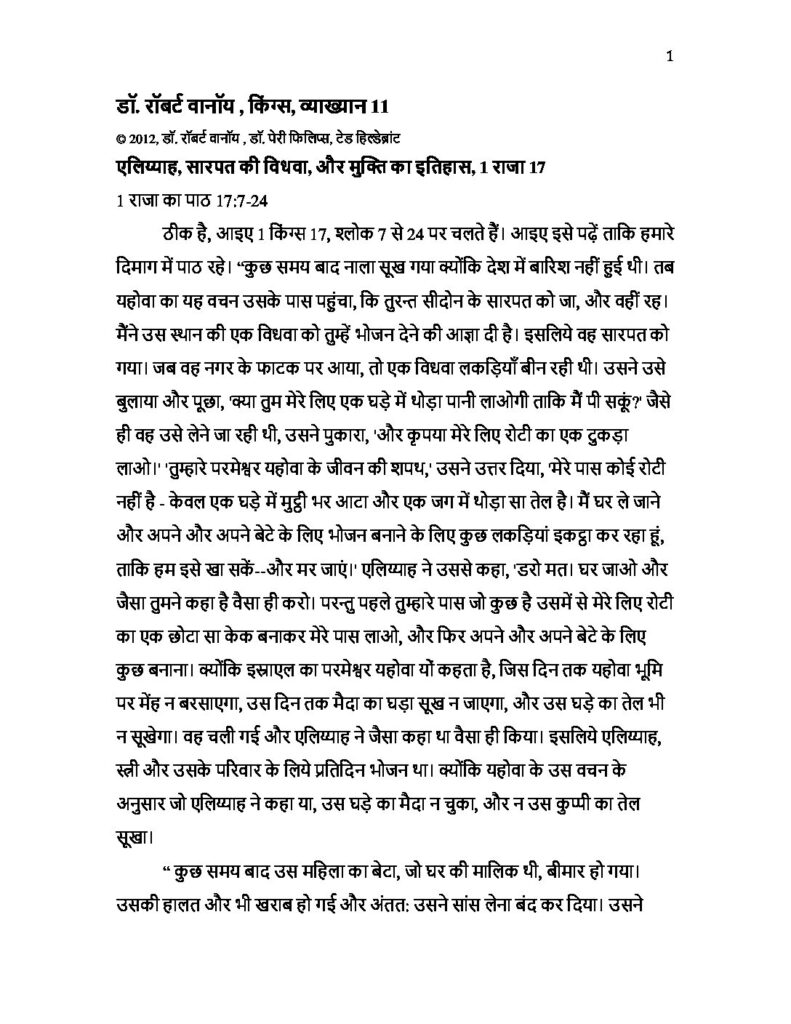 1
डॉ. रॉबर्ट वानॉय , किंग्स, व्याख्यान 11
© 2012, डॉ. रॉबर्ट वानॉय , डॉ. पेरी फिलिप्स, टेड हिल्डेब्रांट
एलिय्याह, सारपत की विधवा, और मुक्ति का इतिहास, 1 राजा 17
1 राजा का पाठ 17:7-24
ठीक है, आइए 1 किंग्स 17, श्लोक 7 से 24 पर चलते हैं। आइए इसे पढ़ें ताकि हमारे
दिमाग में पाठ रहे। “कुछ समय बाद नाला सूख गया क्योंकि देश में बारिश नहीं हुई थी। तब
यहोवा का यह वचन उसके पास पहुंचा, कि तुरन्त सीदोन के सारपत को जा, और वहीं रह।
मैंने उस स्थान की एक विधवा को तुम्हें भोजन देने की आज्ञा दी है। इसलिये वह सारपत को
गया। जब वह नगर के फाटक पर आया, तो एक विधवा लकड़ियाँ बीन रही थी। उसने उसे
बुलाया और पूछा, 'क्या तुम मेरे लिए एक घड़े में थोड़ा पानी लाओगी ताकि मैं पी सकूं?' जैसे
ही वह उसे लेने जा रही थी, उसने पुकारा, 'और कृपया मेरे लिए रोटी का एक टुकड़ा
लाओ।' 'तुम्हारे परमेश्वर यहोवा के जीवन की शपथ,' उसने उत्तर दिया, 'मेरे पास कोई रोटी
नहीं है - केवल एक घड़े में मुट्ठी भर आटा और एक जग में थोड़ा सा तेल है। मैं घर ले जाने
और अपने और अपने बेटे के लिए भोजन बनाने के लिए कुछ लकड़ियां इकट्ठा कर रहा हूं,
ताकि हम इसे खा सकें--और मर जाएं।' एलिय्याह ने उससे कहा, 'डरो मत। घर जाओ और
जैसा तुमने कहा है वैसा ही करो। परन्तु पहले तुम्हारे पास जो कुछ है उसमें से मेरे लिए रोटी
का एक छोटा सा केक बनाकर मेरे पास लाओ, और फिर अपने और अपने बेटे के लिए
कुछ बनाना। क्योंकि इस्राएल का परमेश्वर यहोवा यों कहता है, जिस दिन तक यहोवा भूमि
पर मेंह न बरसाएगा, उस दिन तक मैदा का घड़ा सूख न जाएगा, और उस घड़े का तेल भी
न सूखेगा। वह चली गई और एलिय्याह ने जैसा कहा था वैसा ही किया। इसलिये एलिय्याह,
स्त्री और उसके परिवार के लिये प्रतिदिन भोजन था। क्योंकि यहोवा के उस वचन के
अनुसार जो एलिय्याह ने कहा या, उस घड़े का मैदा न चुका, और न उस कुप्पी का तेल
सूखा।
“ कुछ समय बाद उस महिला का बेटा, जो घर की मालिक थी, बीमार हो गया।
उसकी हालत और भी खराब हो गई और अंतत: उसने सांस लेना बंद कर दिया। उसने